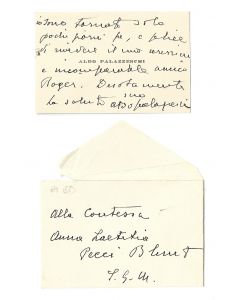 sono tornato solo
pochi giorni fa, e felice
di rivedere il suo carissimo
ALDO PALAZZESCHI
e incomparabile amico
Roger. Devotamente
la saluto aldo palazzeschi
Alla Contessa
Anna Laetitia
Pecci Blunt
S. G. M.